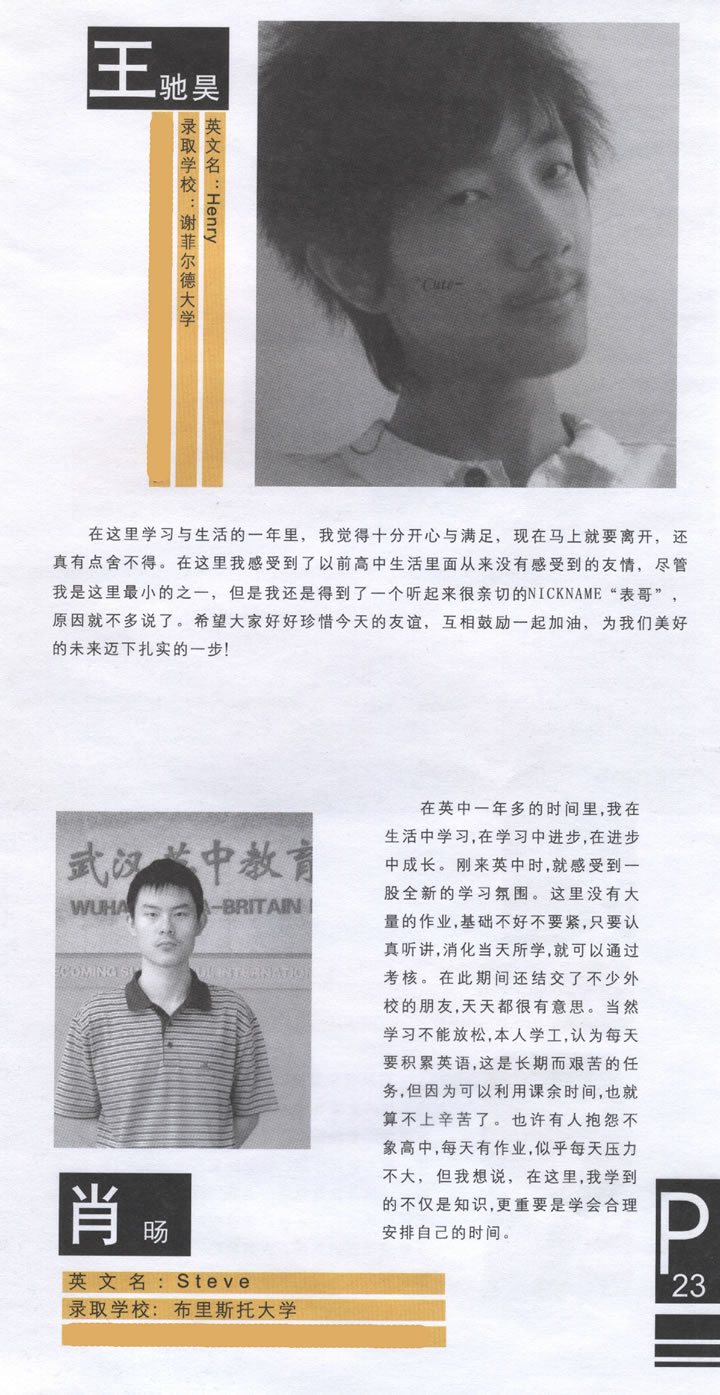 王驰昊
英文名：Henry
录取学校：谢菲尔德大学
"Cute~
在这里学习与生活的一年里，我觉得十分开心与满足，现在马上就要离开，还
真有点舍不得。在这里我感受到了以前高中生活里面从来没有感受到的友情，尽管
我是这里最小的之一，但是我还是得到了一个听起来很亲切的NICKNAME“表哥”，
原因就不多说了。希望大家好好珍惜今天的友谊，互相鼓励一起加油，为我们美好
的未来迈下扎实的一步!
武汉英中教育
WUHA A-BRITAIN
ECOMING S UL INTERNATION
在英中一年多的时间里,我在
生活中学习,在学习中进步,在进步
中成长。刚来英中时,就感受到一
股全新的学习氛围。这里没有大
量的作业,基础不好不要紧,只要认
真听讲,消化当天所学,就可以通过
考核。在此期间还结交了不少外
校的朋友,天天都很有意思。当然
学习不能放松,本人学工,认为每天
要积累英语,这是长期而艰苦的任
务,但因为可以利用课余时间,也就
算不上辛苦了。也许有人抱怨不
象高中,每天有作业,似乎每天压力
不大，但我想说，在这里,我学到
的不仅是知识,更重要是学会合理
安排自己的时间。
肖旸
英文名：Steve
录取学校：布里斯托大学
P
23